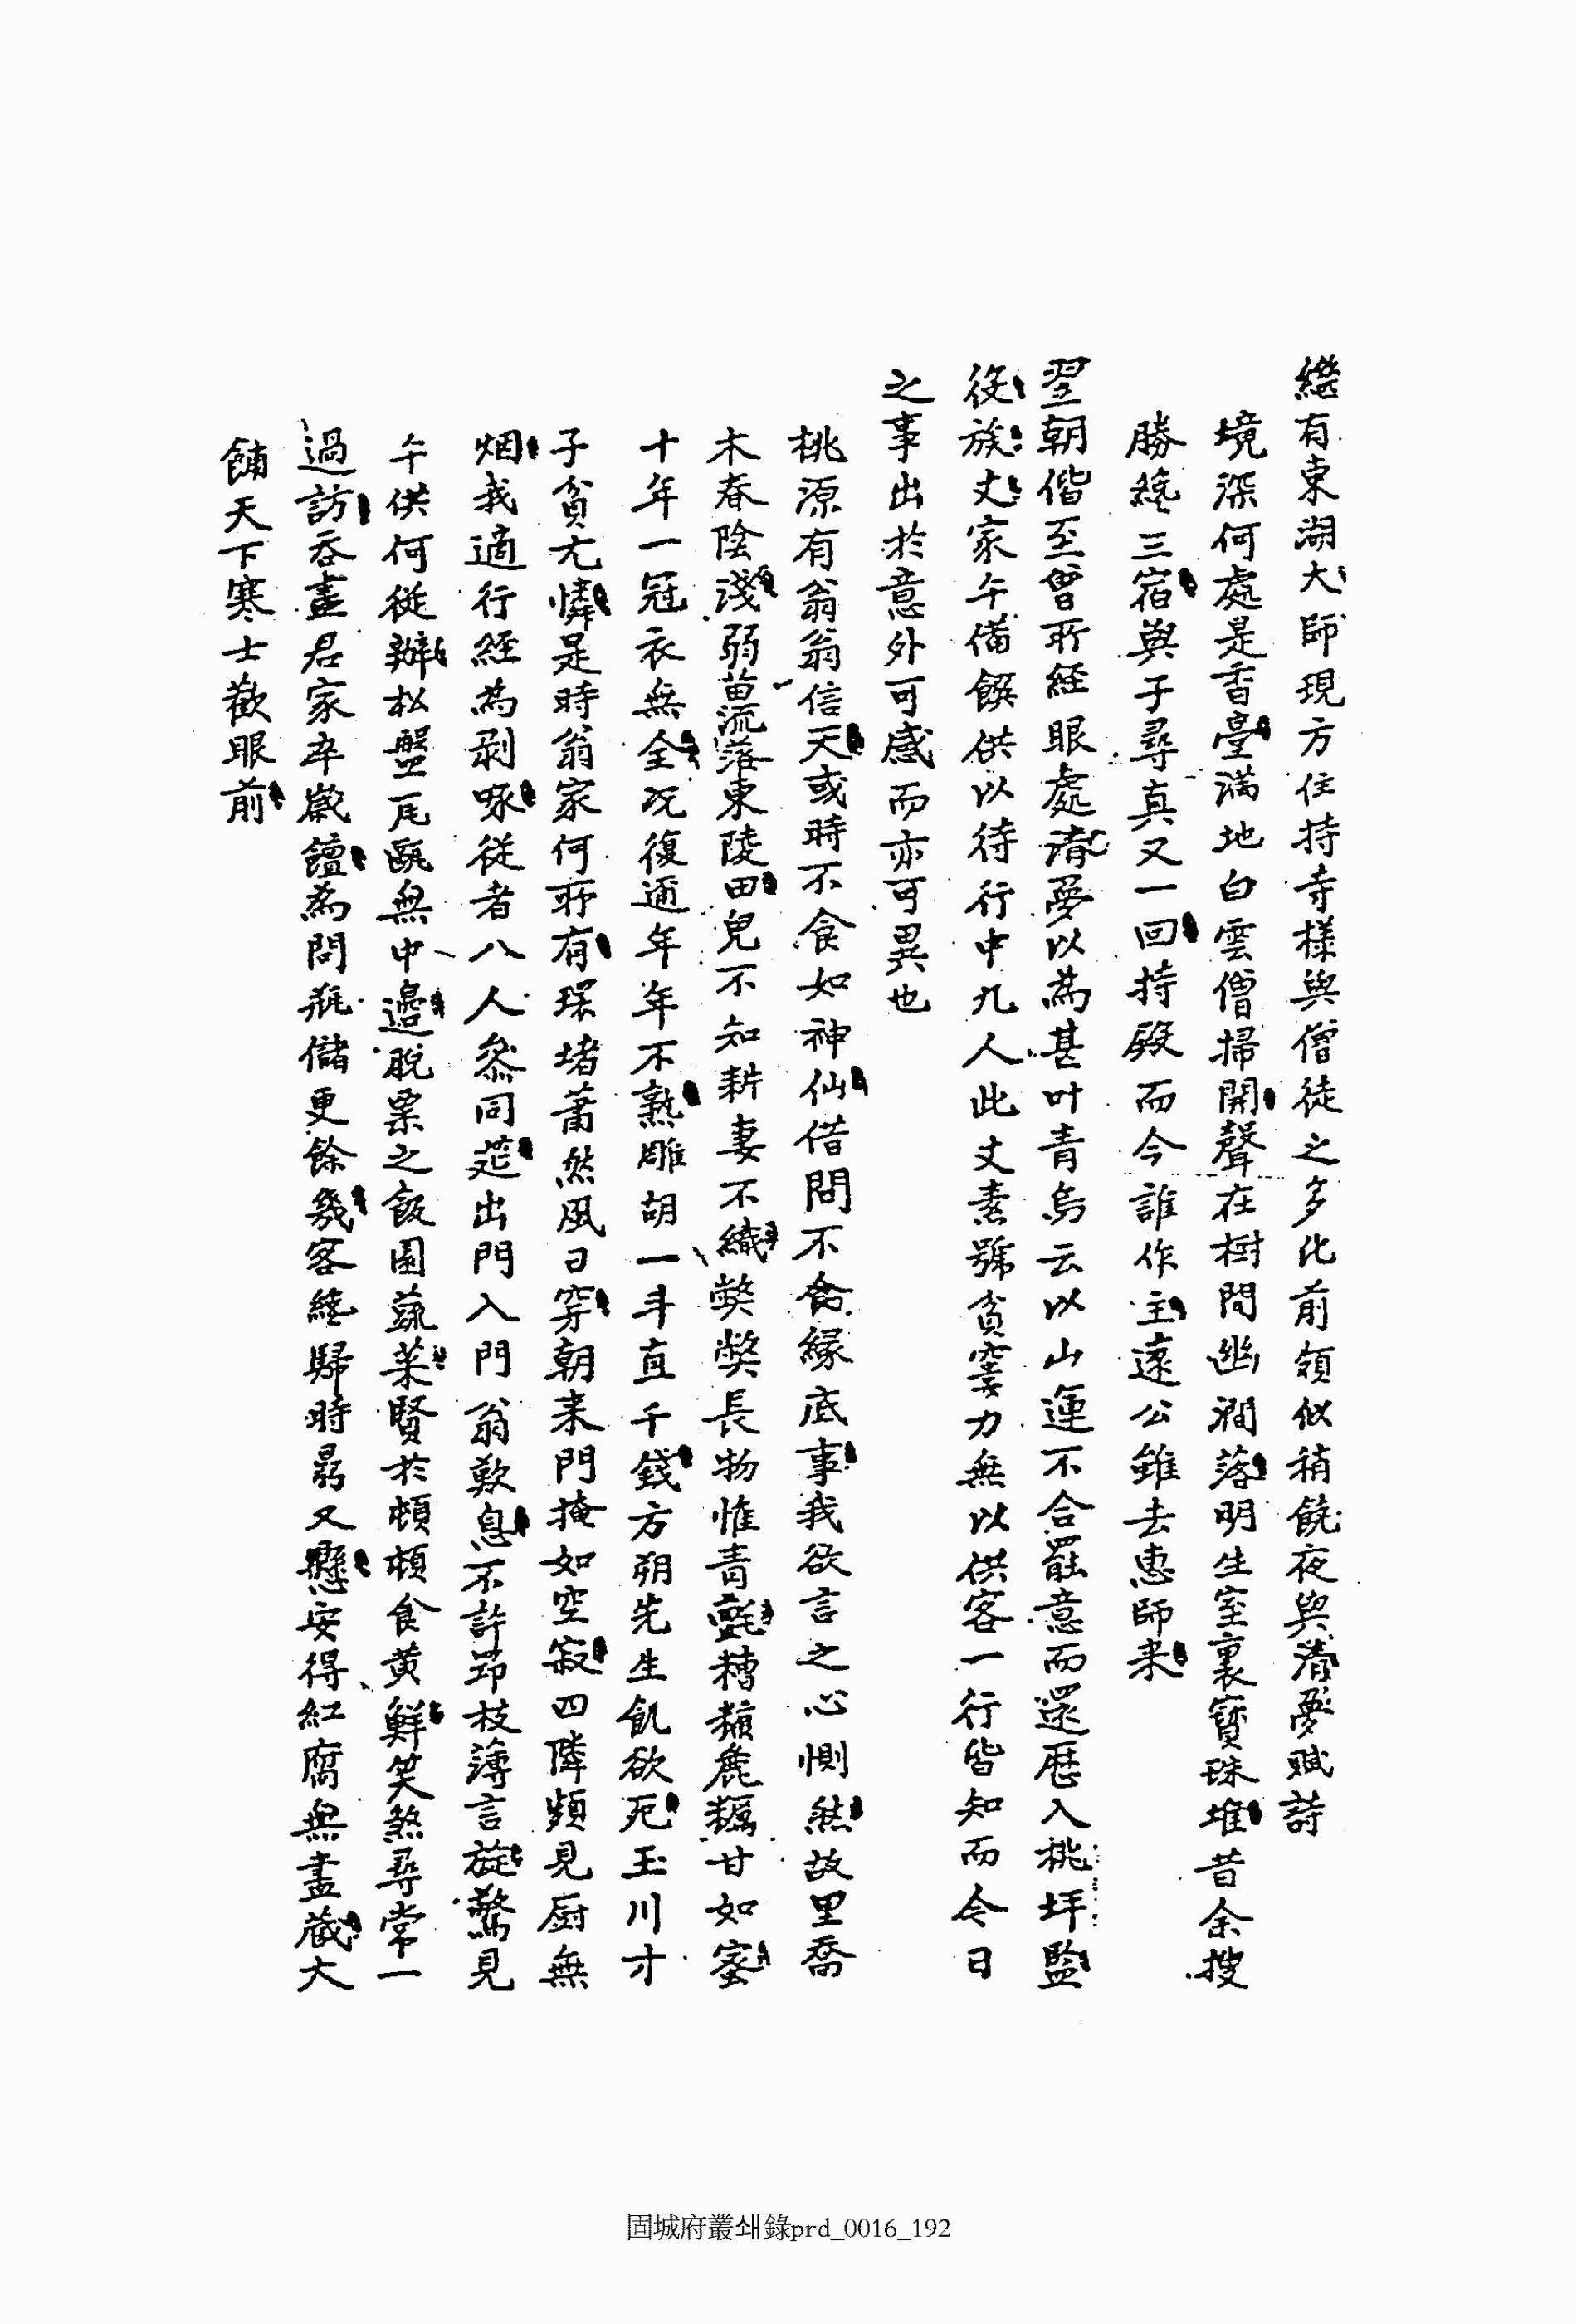 繼有東湖大師現方住持寺樣與僧徒之多比前頗似稍饒夜與淸夢賦詩
境深何處是香臺滿地白雲僧掃開聲在樹間幽澗落明生室裏寶珠堆昔余搜
勝纔三宿與子尋真又一回持殿而今誰作主遠公雖去惠師来
翌朝偕至曾所經眼處淸夢以為甚叶青烏云以山運不合罷意而還歷入桃坪監
役族丈家午備饌供以待行中九人此丈素號貧窶力無以供客一行皆知而今日
之事出於意外可感而亦可異也
桃源有翁翁信天或時不食如神仙借問不食緣底事我欲言之心惻然故里喬
木春陰淺弱苗流落東陵田兒不知耕妻不織獘獘長物惟青氈糟糠麁糲甘如蜜
十年一冠衣無全况復通年年不熟雕胡一斗直千錢方朔先生飢欲死玉川才
子貧尤憐是時翁家何所有環堵蕭然風日穿朝来門掩如空寂四隣頻見厨無
烟我適行經為剥啄從者八人叅同筵出門入門翁歎息不許笻枝薄言旋驚見
午供何從辦松盤瓦甌無中邊脫粟之飯園蔬菜賢於頓頓食黄鮮笑煞尋常一
過訪吞盡君家卒歲饘為問甁儲更餘幾客纔歸時鼎又懸安得紅腐無盡藏大
餔天下寒士歡眼前
固城府叢쇄錄prd_0016_192